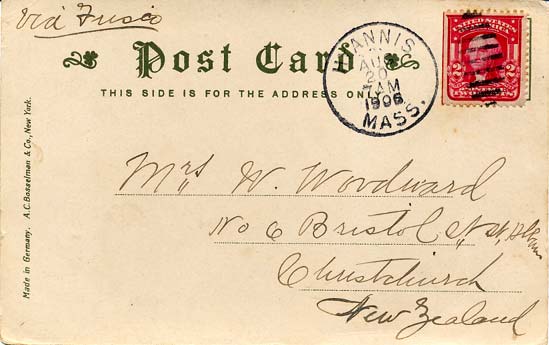 Via Frisco
Post Card
THIS SIDE IS FOR THE ADDRESS ONLY
ANNIS
AUG
20
7 AM
1906
MASS.
UNITED STATES
2 2
TWO CENTS
Mrs W. Woodward
No 6 Bristol St,
Christchurch
New Zealand
Made in Germany. A.C. Bosselman & Co., New York.